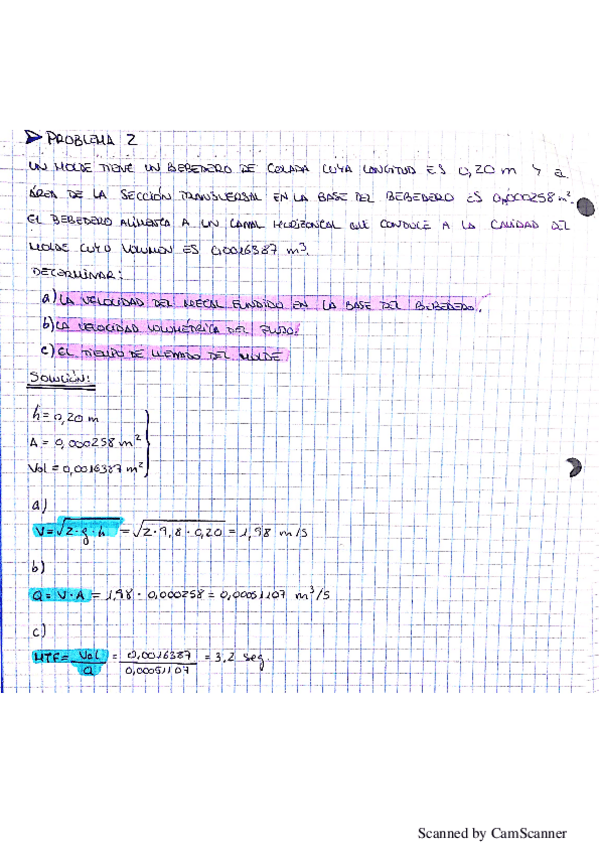 ➤ PROBLEMA 2
UN MOLDE TIENE UN BEBEDERO DE COLADA CUYA LONGITUD ES 0,20 m Y EL
ÁREA DE LA SECCIÓN TRANSVERSAL EN LA BASE DEL BEBEDERO ES 0,000258 m².
EL BEBEDERO ALIMENTA A UN CANAL HORIZONTAL QUE CONDUCE A LA CAVIDAD DEL
MOLDE CUYO VOLUMEN ES 0,0016387 m³.
DETERMINAR:
a) LA VELOCIDAD DEL METAL FUNDIDO EN LA BASE DEL BEBEDERO.
b) LA VELOCIDAD VOLUMÉTRICA DEL FLUJO.
c) EL TIEMPO DE LLENADO DEL MOLDE
SOLUCIÓN:
h = 0,20 m
A = 0,000258 m²
Vol = 0,0016387 m²
a)
V = √2·g·h = √2·9,8·0,20 = 1,98 m/s
b)
Q = V·A = 1,98 · 0,000258 = 0,00051107 m³/s
c)
MTF = Vol / Q = 0,0016387 / 0,00051107 = 3,2 seg.
Scanned by CamScanner